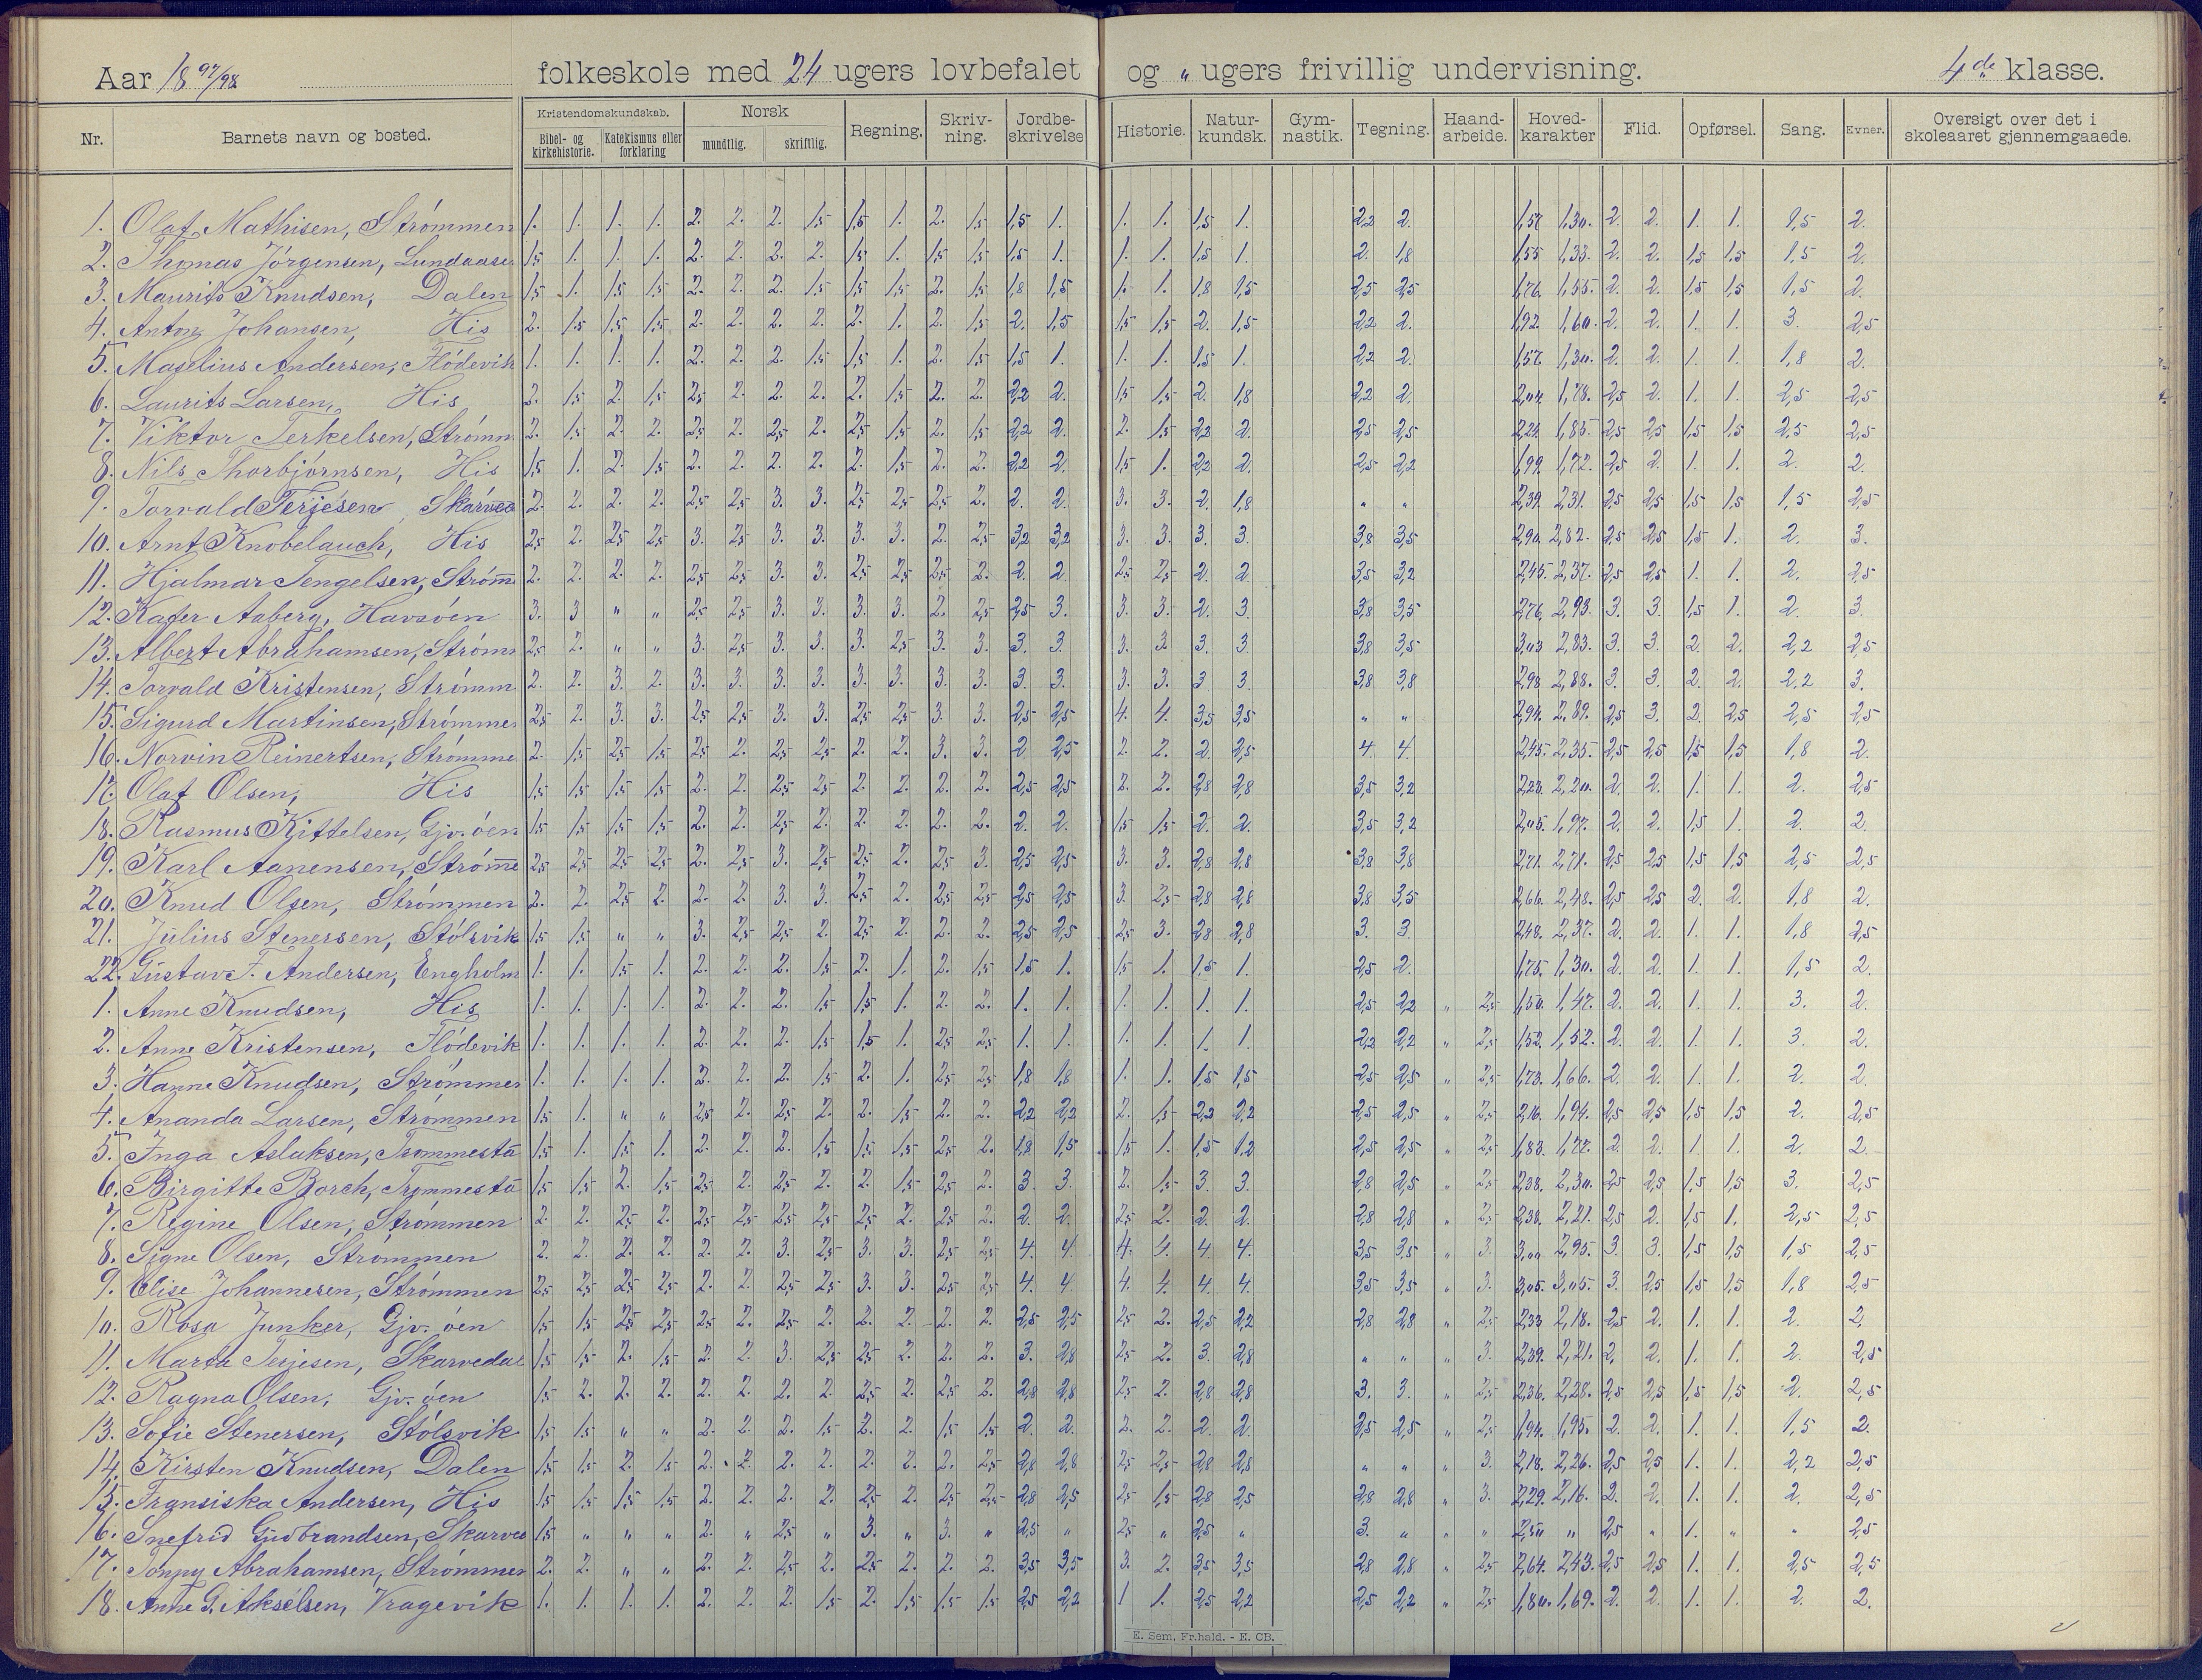 Aar 1897/98. folkeskole med 24 ugers lovbefalet og „ ugers frivillig undervisning. 4de klasse.
Nr. Barnets navn og bosted. Kristendomskundskab. Bibel- og kirkehistorie. Katekismus eller forklaring Norsk mundtlig. skriftlig. Regning. Skriv-ning. Jordbe-skrivelse Historie. Natur-kundsk. Gym-nastik. Tegning. Haand-arbeide. Hoved-karakter Flid. Opførsel. Sang. Evner. Oversigt over det i skoleaaret gjennemgaaede.
1. Olaf Mathisen, Strömmen 1. 1. 1. 1. 2. 2. 2. 1,5 1,5 1. 2. 1,5 1,5 1. 1. 1. 1,5 1. 2,2 2. 1,57 1,30. 2. 2. 1. 1. 1,5 2.
2. Thomas Jörgensen, Lundaasen 1,5 1. 1. 1. 2. 2. 2. 2. 1,5 1. 1,5 1,5 1,5 1. 1. 1. 1,5 1. 2. 1,8 1,55 1,33. 2. 2. 1,5 1,5 1,5 2.
3. Maurits Knudsen, Dalen 1,5 1. 1,5 1,5 2. 2. 2. 1,5 1,5 1,5 2. 1,5 1,8 1,5 1. 1. 1,8 1,5 2,5 2,5 1,76. 1,55. 2. 2. 1,5 1,5 1,5 2.
4. Anton Johansen, His 2. 1,5 1,5 1,5 2. 2. 2. 2. 2. 1. 2. 1,5 2. 1,5 1,5 1,5 2. 1,5 2,2 2. 1,92 1,60. 2. 2. 1. 1. 3. 2,5
5. Maselius Andersen, Flödevik 1. 1. 1. 1. 2. 2. 2. 1,5 1,5 1. 2. 1,5 1,5 1. 1. 1. 1,5 1. 2,2 2. 1,57. 1,30. 2. 2. 1. 1. 1,8 2.
6. Laurits Larsen, His 2. 1,5 2. 1,5 2,5 2. 2. 2. 2. 1,5 2. 2. 2,2 2. 1,5 1,5 2. 1,8 2,2 2. 2,04. 1,78. 2,5 2. 1. 1. 2,5 2,5
7. Viktor Terkelsen, Strömm 2. 1,5 2. 2. 2,5 2. 2,5 2. 2,5 1,5 2. 1,5 2,2 2. 2. 1,5 2,2 2. 2,5 2,5 2,24. 1,85. 2,5 2,5 1,5 1,5 2,5 2,5
8. Nils Thorbjörnsen, His 1,5 1. 2. 1,5 2. 2. 2. 2. 2. 1,5 2. 2. 2,2 2. 1,5 1. 2,2 2. 2,5 2,2 1,99. 1,72. 2,5 2. 1. 1. 2. 2.
9. Torvald Terjesen Skarved 2. 2. 2. 2. 2,5 2,5 3. 3. 2,5 2,5 2,5 2. 2. 2. 3. 3. 2. 1,8 „ „ 2,39. 2,31. 2,5 2,5 1,5 1,5 1,5 2,5
10. Arnt Knobelauch, His 2,5 2. 2,5 2,5 3. 2,5 3. 3. 3. 3. 2. 2,5 3,2 3,2 3. 3. 3. 3. 3,8 3,5 2,90. 2,82. 2,5 2,5 1,5 1. 2. 3.
11. Hjalmar Tengelsen, Ström̅ 2. 2. 2. 2. 2,5 2,5 3. 3. 2,5 2,5 2,5 2. 2. 2. 2,5 2,5 2. 2. 3,5 3,2 2,45. 2,37. 2,5 2,5 1. 1. 2. 2,5
12. Kafer Aaberg, Havsöen 3. 3 „ „ 2,5 2,5 3. 3. 3. 3. 2. 2,5 2,5 3. 3. 3. 2. 3. 3,8 3,5 2,76. 2,93. 3. 3. 1,5 1. 2. 3.
13. Albert Abrahamsen, Strömm 2,5 2. „ „ 3. 2,5 3. 3. 3. 2,5 3. 3. 3. 3. 3. 3. 3. 3. 3,8 3,5 3,03 2,83. 3. 3. 2. 2. 2,2 2,5
14. Torvald Kristensen, Strömm 2. 2. 3. 2. 3. 3. 3. 3. 3. 3. 3. 3. 3. 3. 3. 3. 3. 3. 3,8 3,8 2,98 2,88. 3. 3. 2. 2. 2,2 3.
15. Sigurd Martinsen, Strömmen 2,5 2. 3. 3. 2,5 2,5 3. 3. 2,5 2,5 3. 3. 2,5 2,5 4. 4. 3,5 3,5 „ „ 2,94. 2,89. 2,5 3. 2. 2,5 2,5 2,5
16. Norvin Reinertsen, Strömme 2. 1,5 2,5 1,5 2,5 2. 2,5 2,5 2. 2. 3. 3. 2. 2,5 2. 2. 2. 2,5 4. 4. 2,45. 2,35. 2,5 2,5 1,5 1,5 1,8 2.
17. Olaf Olsen, His 1,5 1,5 1,5 1,5 2. 2. 2,5 2,5 2. 2. 2. 2. 2,5 2,5 2. 2. 2,8 2,8 3,5 3,2 2,23. 2,20. 2. 2. 1. 1. 2. 2,5
18. Rasmus Kittelsen, Gjv. öen 1,5 1,5 1,5 1,5 2. 2. 2,5 2. 2. 2. 2. 2. 2. 2. 1,5 1,5 2. 2. 3,5 3,2 2,05. 1,97. 2. 2. 1,5 1. 2. 2.
19. Karl Aanensen, Ström̅e 2,5 2,5 2,5 2,5 2. 2,5 3. 2,5 2,5 2. 2,5 3. 2,5 2,5 3. 3. 2,8 2,8 3,8 3,8 2,71. 2,71. 2,5 2,5 1,5 1,5 2,5 2,5
20. Knud Olsen, Strömmen 2. 2. 2,5 2. 2. 2. 3. 3. 2,5 2. 2,5 2,5 2,5 2,5 3. 2,5 2,8 2,8 3,8 3,5 2,66. 2,48. 2,5 2,5 2. 2. 1,8 2.
21. Julius Stenersen, Stölsvik 1,5 1,5 „ „ 3. 2,5 2,5 2. 2,5 2. 2. 2. 2,5 2,5 2,5 3. 2,8 2,8 3. 3. 2,48. 2,37. 2. 2. 1. 1. 1,8 2,5
22. Gustav F. Andersen, Engholm 1. 1. 1,5 1. 2. 2. 2. 1,5 2. 1. 2. 1,5 1,5 1. 1,5 1. 1,5 1. 2,5 2. 1,75. 1,30. 2. 2. 1. 1. 1,5 2.
1. Anne Knudsen, His 1. 1. 1. 1. 2. 2. 2. 1,5 1,5 1. 2. 2. 1. 1. 1. 1. 1. 1. 2,5 2,2 „ 2,5 1,50. 1,47. 2. 2. 1. 1. 3. 2.
2. Anne Kristensen, Flödevik 1. 1. 1. 1. 2. 2. 2. 1,5 1,5 1. 2,5 2,5 1. 1. 1. 1. 1. 1. 2,2 2,2 „ 2,5 1,52. 1,52. 2. 2. 1. 1. 3. 2.
3. Hanne Knudsen, Strömmen 1. 1. 1. 1. 2. 2. 2. 1,5 2. 1. 2,5 2,5 1,8 1,8 1. 1. 1,5 1,5 2,5 2,5 „ 2,5 1,73. 1,66. 2. 2. 1. 1. 2. 2.
4. Ananda Larsen, Strömmen 1,5 1. „ „ 2,5 2. 2,5 2. 2. 1,5 2. 2. 2,2 2,2 2. 1,5 2,2 2,2 2,5 2,5 „ 2,5 2,16. 1,94. 2,5 2,5 1,5 1,5 2. 2,5
5. Inga Aslaksen, Trommesta 1,5 1. 1,5 1. 2. 2. 2. 1,5 1,5 1,5 2,5 2. 1,8 1,5 1,5 1. 1,5 1,2 2,5 2,5 „ 2,5 1,83. 1,77. 2. 2. 1. 1. 2. 2.
6. Birgitte Borch, Trommestd 1,5 1,5 2. 1,5 2,5 2. 2,5 2. 2. 1,5 2,5 2. 3. 3. 2. 1,5 3. 3. 2,8 2,5 „ 2,5 2,38. 2,30. 2,5 2,5 1,5 1,5 3. 2,5
7. Regine Olsen, Strömmen 2. 2. 2,5 2. 2,5 2,5 2,5 2,5 2,5 2. 2,5 2. 2. 2. 2,5 2. 2. 2. 2,8 2,8 „ 2,5 2,38. 2,21. 2,5 2. 1,5 1. 2,5 2,5
8. Signe Olsen, Strömmen 2. 2. 2. 2. 2. 2. 3. 2,5 3. 3. 2,5 2,5 4. 4. 4. 4. 4. 4. 3,5 3,5 „ 3. 3,00 2,95. 3. 3. 1,5 1,5 1,5 2,5
9. Elise Johannesen, Strömmen 2,5 2,5 2,5 2,5 2. 2. 2,5 2,5 3. 3. 2,5 2,5 4. 4. 4. 4. 4. 4. 3,5 3,5 „ 3. 3,05. 3,05. 3. 2,5 1,5 1,5 1,8 2,5
10. Rosa Junker, Gjv. öen 1,5 1,5 2,5 2,5 2,5 2. 2,5 2. 2. 2. 2. 2. 2,5 2,5 2,5 2. 2,5 2,2 2,8 2,8 „ 2,5 2,33 2,18. 2,5 2. 1. 1. 2. 2.
11. Marta Terjesen, Skarvedal 1,5 1,5 2. 1,5 2. 2. 3. 2,5 2,5 2. 2. 2. 3. 2,8 2,5 2. 3. 2,8 „ „ „ 3. 2,39. 2,21. 2. 2. 1. 1. 2. 2,5
12. Ragna Olsen, Gjv. öen 1,5 2. 2. 2. 2. 2. 2. 2. 2,5 2. 2,5 2. 2,8 2,8 2,5 2. 2,8 2,8 3. 3. „ 2,5 2,36. 2,28. 2,5 2,5 1,5 1,5 2. 2,5
13. Sofie Stenersen, Stölsvik 1,5 1,5 „ „ 2. 2. 2. 1,5 2. 2. 1,5 1,5 2. 2. 2. 2. 2. 2. 2,5 2,5 „ 2,5 1,94. 1,95. 2. 2. 1. 1. 1,5 2.
14. Kirsten Knudsen, Dalen 1,5 1,5 2. 1,5 2. 2. 2. 2. 2. 2. 2. 2,5 2,8 2,8 2,5 2,5 2,8 2,8 „ „ „ 3. 2,18. 2,26. 2,5 2,5 1. 1. 2,2 2,5
15. Fransiska Andersen, His 1,5 1,5 1,5 1,5 2. 2. 2. 2. 2,5 2. 2,5 2,5 2,8 2,5 2,5 1,5 2,8 2,5 2,8 2,8 „ 3. 2,29. 2,16. 2. 2. 1. 1. 2. 2,5
16. Snefrid Gudbrandsen, Skarved 1,5 „ „ „ 2. „ 2,5 „ 3. „ 3. „ 2,5 „ 2,5 „ 2,5 „ 3. „ „ „ 2,50 „ 2,5 „ 1. „ „ 2,5
17. Tonny Abrahamsen, Strömmen 2. 2. „ „ 2. 2. 2,5 2. 2,5 2. 2. 2. 3,5 3,5 3. 2. 3,5 3,5 2,8 2,8 „ 2,5 2,64. 2,43. 2,5 2,5 1. 1. 2,5 2,5
18. Anne G. Akselsen, Vragevik 1. 1. 1. 1. 2. 2. 2. 1,5 2. 1,5 1,5 1,5 2,5 2,2 1 1. 2,5 2,2 2,5 2,2 „ 2,5 1,80. 1,69. 2. 2. 1. 1. 2. 2.
E. Sem. Fr.hald. - E. CB.